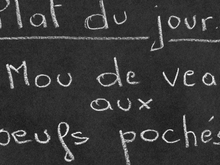 Plat du jour.
Mou de vea
aux
oeufs pochés